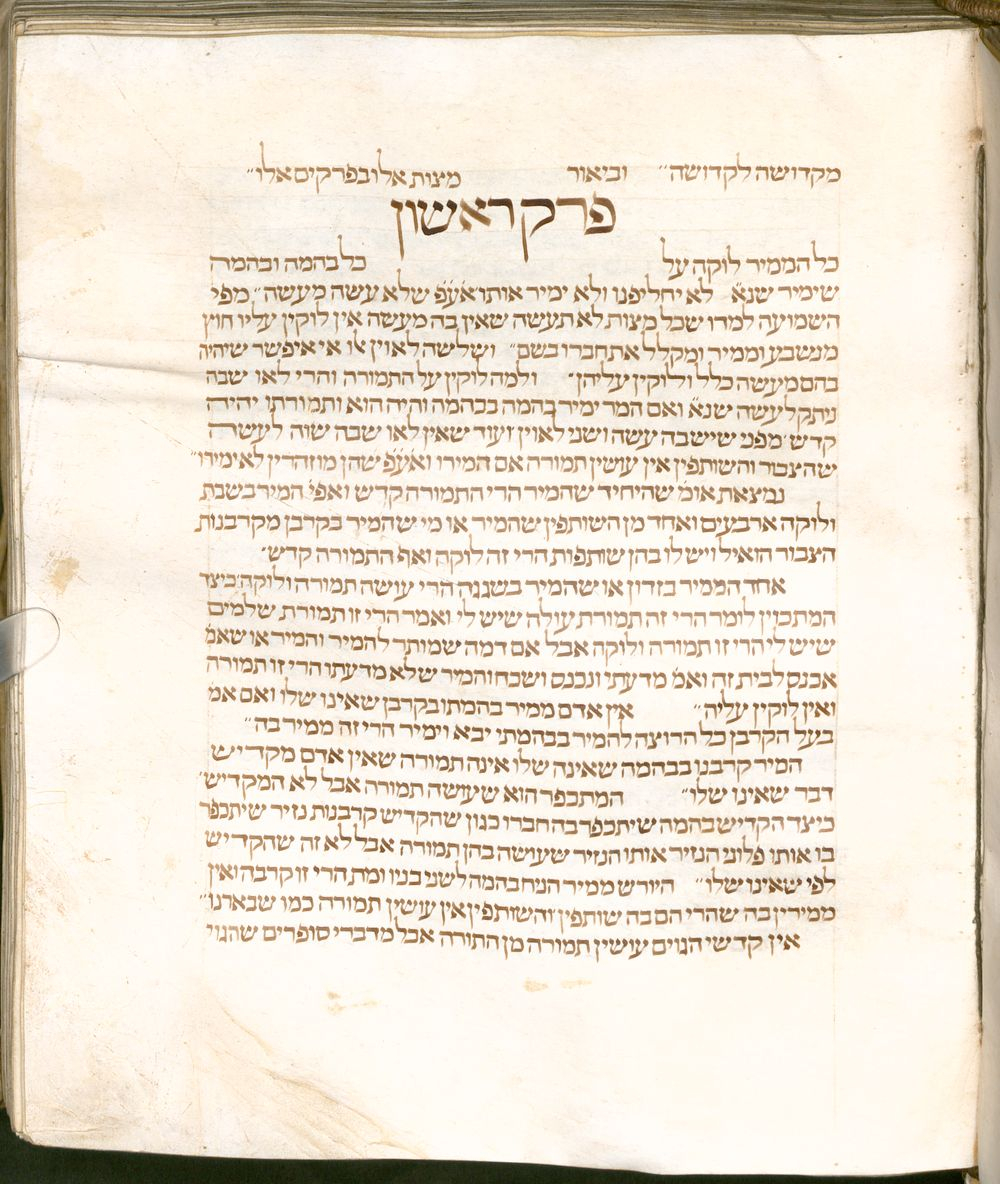 מקדושה לקדושה״ וביאור מצות אלו בפרקים אלו״
פרק ראשון
כל הממיר לוקה על כל בהמה ובהמה
שימיר שנא׳ לא יחליפנו ולא ימיר אותו אע״פ שלא עשה מעשה״ מפי
השמועה למדו שכל מצות לא תעשה שאין בה מעשה אין לוקין עליו חוץ
מנשבע וממיר ומקלל את חברו בשם״ ושלשה לאוין אלו אי איפשר שיהיה
בהם מעשה כלל ולוקין עליהן״ ולמה לוקין על התמורה והרי לאו שבה
ניתק לעשה שנא׳ ואם המר ימיר בהמה בבהמה והיה הוא ותמורתו יהיה
קדש מפני שיש בה עשה ושני לאוין ועוד שאין לאו שבה שוה לעשה
שהצבור והשותפין אין עושין תמורה אם המירו ואע״פ שהן מוזהרין לא ימירו״
נמצאת אומ׳ שהיחיד שהמיר הרי התמורה קדש ואפי׳ המיר בשבת
ולוקה ארבעים ואחד מן השותפין שהמיר או מי שהמיר בקרבן מקרבנות
הצבור הואיל ויש לו בהן שותפות הרי זה לוקה ואף התמורה קדש׳
אחד הממיר בזדון או שהמיר בשגגה הרי עושה תמורה ולוקה כיצד
המתכוין לומר הרי זה תמורת עולה שיש לי ואמר הרי זו תמורת שלמים
שיש לי הרי זו תמורה ולוקה אבל אם דמה שמותר להמיר והמיר או שאמ׳
אכנס לבית זה ואמ׳ מדעתי ונכנס ושכח והמיר שלא מדעתו הרי זו תמורה
ואין לוקין עליה״ אין אדם ממיר בהמתו בקרבן שאינו שלו ואם אמ׳
בעל הקרבן כל הרוצה להמיר בבהמתי יבא וימיר הרי זה ממיר בה״
המיר קרבנו בבהמה שאינה שלו אינה תמורה שאין אדם מקדיש
דבר שאינו שלו״ המתכפר הוא שעושה תמורה אבל לא המקדיש׳
כיצד הקדיש בהמה שיתכפר בה חברו כגון שהקדיש קרבנות נזיר שיתכפר
בו אותו פלוני הנזיר אותו הנזיר שעושה בהן תמורה אבל לא זה שהקדיש
לפי שאינו שלו״ היורש ממיר הניח בהמה לשני בניו ומת הרי זו קרבה ואין
ממירין בה שהרי הם בה שותפין והשותפין אין עושין תמורה כמו שבארנו״
אין קדשי הגוים עושין תמורה מן התורה אבל מדברי סופרים שהגוי